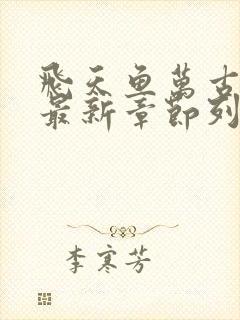 飛天魚萬古
最新章節列
李寒芳